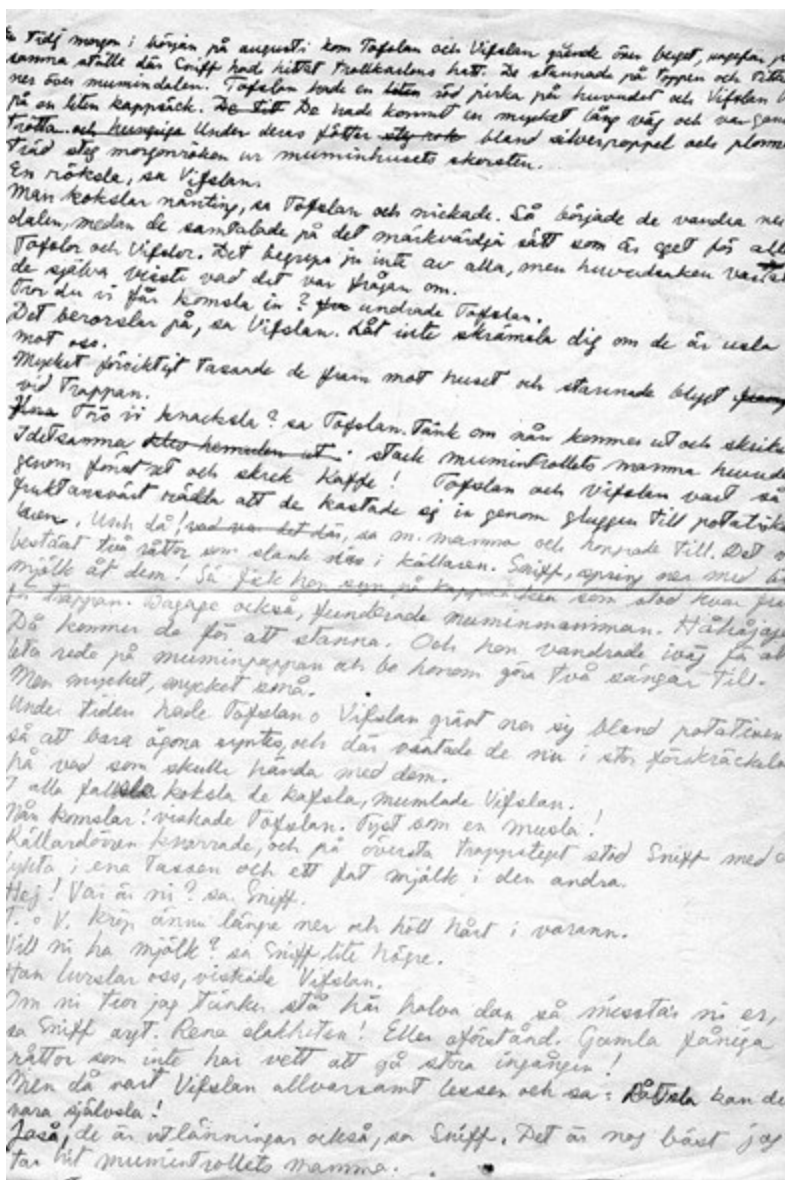 tidij morgon i början på augusti kom Tofslan och Vifslan gående över berget, ungefär
samma ställe där Sniff hade hittat trollkarlens hatt. De stannade på toppen och titta
ner över mumindalen. Tofslan hade en liten röd jacka på huvudet och Vifslan
på en liten kappsäck. De titt De hade kommit en mycket lång väg och var
trötta och hungriga Under deras fötter steg rök bland silverpoppel och plommon
träd steg morgonröken ur muminhusets skorsten.
En röksla, sa Vifslan.
Man kokslar nånting, sa Tofslan och nickade. Så började de vandra ner
dalen, medan de samtalade på det märkvärdiga sätt som är eget för alla
Tofslor och Vifslor. Det begreps ju inte av alla, men huvudsaken var att
de själva visste vad det var frågan om.
Tror du vi får komsla in? undrade Tofslan.
Det berorslar på, sa Vifslan. Låt inte skrämsla dig om de är usla
mot oss.
Mycket försiktigt tassade de fram mot huset och stannade blygt
vid trappan.
Törs vi knacksla? sa Tofslan. Tänk om nån kommer ut och skriks
I detsamma klev hemulen ut stack mumintrollets mamma huvude
genom fönstret och skrek Kaffe! Tofslan och Vifslan vart så
fruktansvärt rädda att de kastade sej in genom gluggen till potatiskä
laren. Usch då! vad var det där, sa m. mamma och hoppade till. Det v
bestämt två råttor som slank ner i källaren. Sniff, spring ner med
mjölk åt dem! Så fick hon syn på kappsäcken som stod kvar
trappan. Bagage också, funderade muminmamman. Håhåjaja
Då kommer de för att stanna. Och hon vandrade iväg för at
leta reda på muminpappan och be honom göra två sängar till.
Men mycket, mycket små.
Under tiden hade Tofslan o Vifslan grävt ner sig bland potatisen
så att bara ögona syntes, och där väntade de nu i stor förskräckels
på vad som skulle hända med dem.
I alla fallsla koksla de kafsla, mumlade Vifslan.
Nån komslar! viskade Tofslan. Tyst som en musla!
Källardörren knarrade, och på översta trappsteget stod Sniff med
lykta i ena tassen och ett fat mjölk i den andra.
Hej! Var är ni? sa Sniff.
T. o V. kröp ännu längre ner och höll hårt i varann.
Vill ni ha mjölk? sa Sniff lite högre.
Han lurslar oss, viskade Vifslan.
Om ni tror jag tänker stå här halva dan så misstar ni er,
sa Sniff argt. Rena elakheten! Eller oförstånd. Gamla fåniga
råttor som inte har vett att gå stora ingången!
Men då vart Vifslan allvarsamt lessen och sa: Råtsla kan du
vara självsla!
Jaså, de är utlänningar också, sa Sniff. Det är nog bäst jag
tar hit mumintrollets mamma.